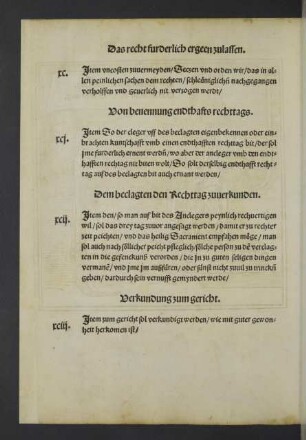 Das recht furderlich ergeen zulassen.
xc. Item vncosten zuuermeyden/ Setzen vnd orden wir/ das in al
len peinlichen sachen dem rechten/ schleüniglichñ nachgegangen
verholffen vnd geuerlich nit verzogen werd/
Von benennung endthaffts rechttags.
xcj. Item So der cleger vff des beclagten eigenbekennen oder ein
brachten kuntschafft vmb einen endthafften rechttag bit/ der sol
jme furderlich ernent werdñ/ wo aber der ancleger vmb ten endt
hafften rechttag nit biten wolt/ So solt derselbig endthafft recht
tag auf des beclagten bit auch ernant werden/
Dem beclagten den Rechttag zuuerkunden.
xcij. Item den/ so man auf bit des Anclegers peynlich rechuertigen
wil/ sol das drey tag zuuor angesagt werden/ damit er zu rechter
zeit peichten/ vnd das heilig Sacrament empfahen möge/ man
sol auch nach söllicher peicht pfleglich/ söliche person zu dē verclag
ten in die gefencknuß verorden/ die jn zu guten seligen dingen
vermanē/ vnd jme jm außfüren/ oder sunst nicht zuuil zu trinckñ
geben/ dadurch sein vernufft gemyndert werde/
Verkundung zum gericht.
xciij. Item zum gericht sol verkundigt werden/ wie mit guter gewon-
heit herkomen ist/